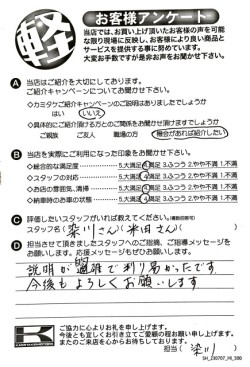 軽
お客様アンケート
当店では、お買い上げ頂いたお客様の声を可能
な限り現場に反映し、お客様により良い商品と
サービスを提供する事に努めています。
大変お手数ですが是非お声をお聞かせ下さい。
A 当店はご紹介を大切にしております。
ご紹介キャンペーンについてお聞かせ下さい。
◇カミタケご紹介キャンペーンのご説明はありましたでしょうか
はい いいえ
◇具体的にご紹介頂ける方とのご関係をお聞かせ頂けますでしょうか
ご親族 ご友人 職場の方 機会があれば紹介したい
B 当店を実際にご利用になった印象をお聞かせ下さい。
◇総合的な満足度 5.大満足 4.満足 3.ふつう 2.やや不満 1.不満
◇スタッフの対応 5.大満足 4.満足 3.ふつう 2.やや不満 1.不満
◇お店の雰囲気、清掃 5.大満足 4.満足 3.ふつう 2.やや不満 1.不満
◇納車時のお車の状態 5.大満足 4.満足 3.ふつう 2.やや不満 1.不満
C 評価したいスタッフがいれば教えてください。(複数回答可)
スタッフ名(染川さん)(米田さん)
D 担当させて頂きましたスタッフへのご指摘、ご指導メッセージを
お願いします。応援メッセージもぜひお願いします。
説明が で判り易かったです
今後もよろしくお願いします
ご協力に心よりお礼を申し上げます。
今後とも宜しくお引き立てご愛顧の程お願い申し上げます。
またのご来店を心からお待ちしております。
担当(染川)
SH_230707_HI_306